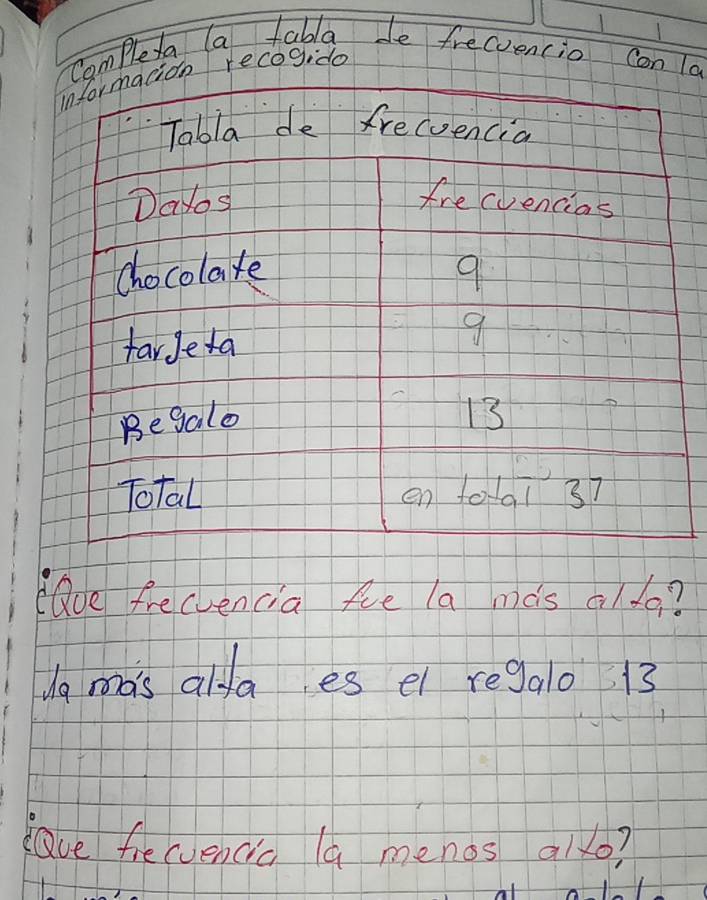 Completa la tabla de frecuencio con la
información recogido
Tabla de frecuencia
Datos frecuencias
Chocolate 9
tarjeta 9
Regalo 13
Total en total 37
¿Que frecuencia fue la más alta?
La más alta es el regalo 13
¿Que frecuencia la menos alto?